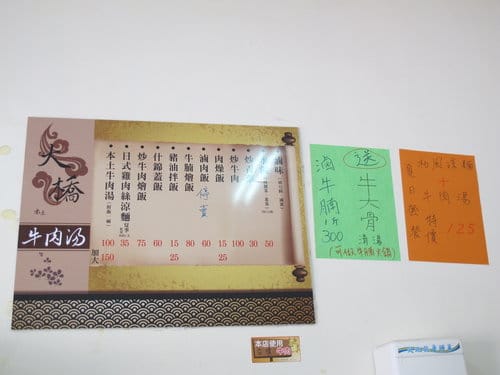 大橋
本土
牛肉湯
滷味
炒牛肉
肉燥飯
滷肉飯
停賣
牛腩飯
豬油拌飯
什錦蓋飯
炒牛肉燴飯
日式雞肉絲涼麵
本土牛肉湯
50
30
100
15
60
80
15
60
75
35
100
加大
25
25
150
送
牛大骨
清湯
滷牛腩1斤300
(可做牛腩火鍋)
和風涼麵
+
牛肉湯
特價
125
夏日套裝
本店使用